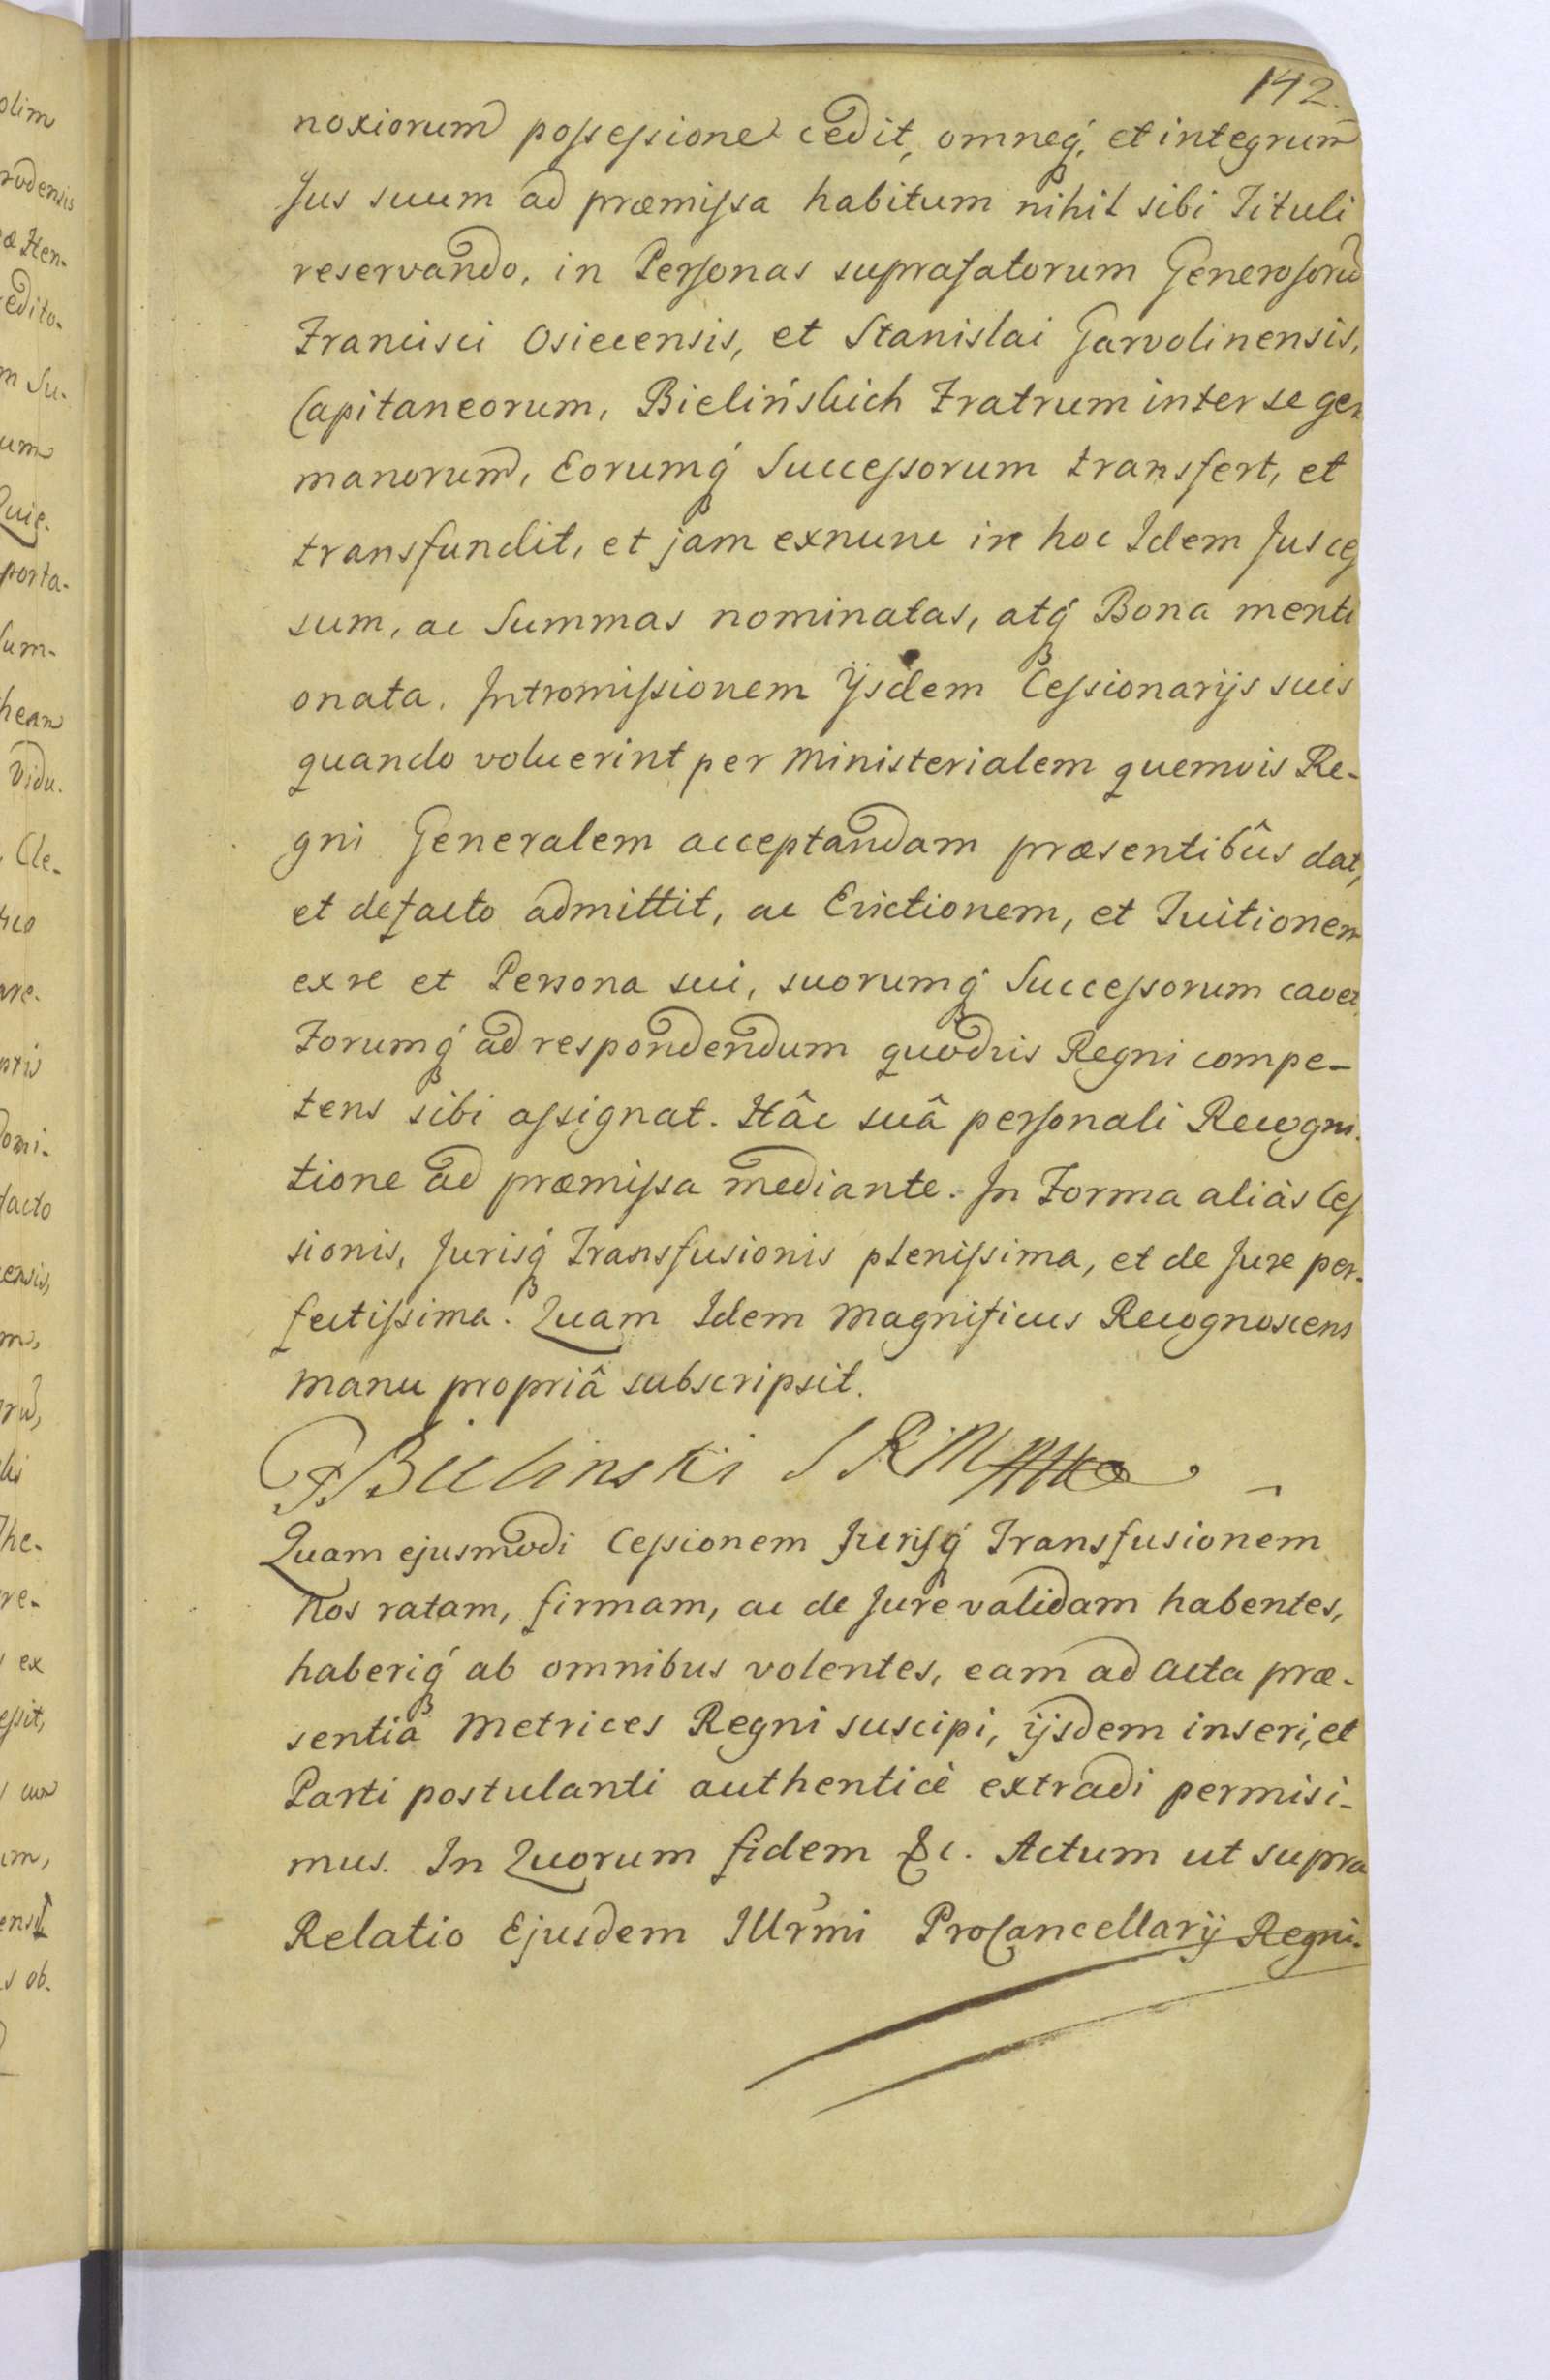 142.
noxiorum possessione cedit, omneq́, et integrum
Jus suum ad præmissa habitum nihil sibi Tituli
reservando, in Personas suprafatorum Generosorū
Francisci Osiecensis, et Stanislai Garvolinensis,
Capitaneorum, Bielińskich Fratrum inter se ger
manorum, Eorumq́ Successorum transfert, et
transfundit, et jam exnunc in hoc Idem Jus ces
sum, ac Summas nominatas, atq́ Bona menti
onata. Intromissionem ijsdem Cessionarijs suis
quando voluerint per Ministerialem quemvis Re-
gni Generalem acceptandam præsentibûs dat,
et defacto admittit, ac Evictionem, et Tuitionem
ex re et Persona sui, suorumq́ Successorum cavet,
Forumq́ ad respondendum quodvis Regni compe-
tens sibi assignat. Hâc suâ personali Recogni-
tione ad præmissa mediante. In Forma aliàs Ces
sionis, Jurisq́ Transfusionis plenissima, et de Jure per-
fectissima. Quam Idem Magnificus Recognoscens
manu propriâ subscripsit.
Bielinski
Quam ejusmodi Cessionem Jurisq́ Transfusionem
Nos ratam, firmam, ac de Jure validam habentes,
haberiq́ ab omnibus volentes, eam ad Acta præ-
sentia Metrices Regni suscipi, ijsdem inseri, et
Parti postulanti authenticè extradi permisi-
mus. In Quorum fidem &c. Actum ut supra
Relatio Ejusdem Illrmi ProCancellarij Regni.